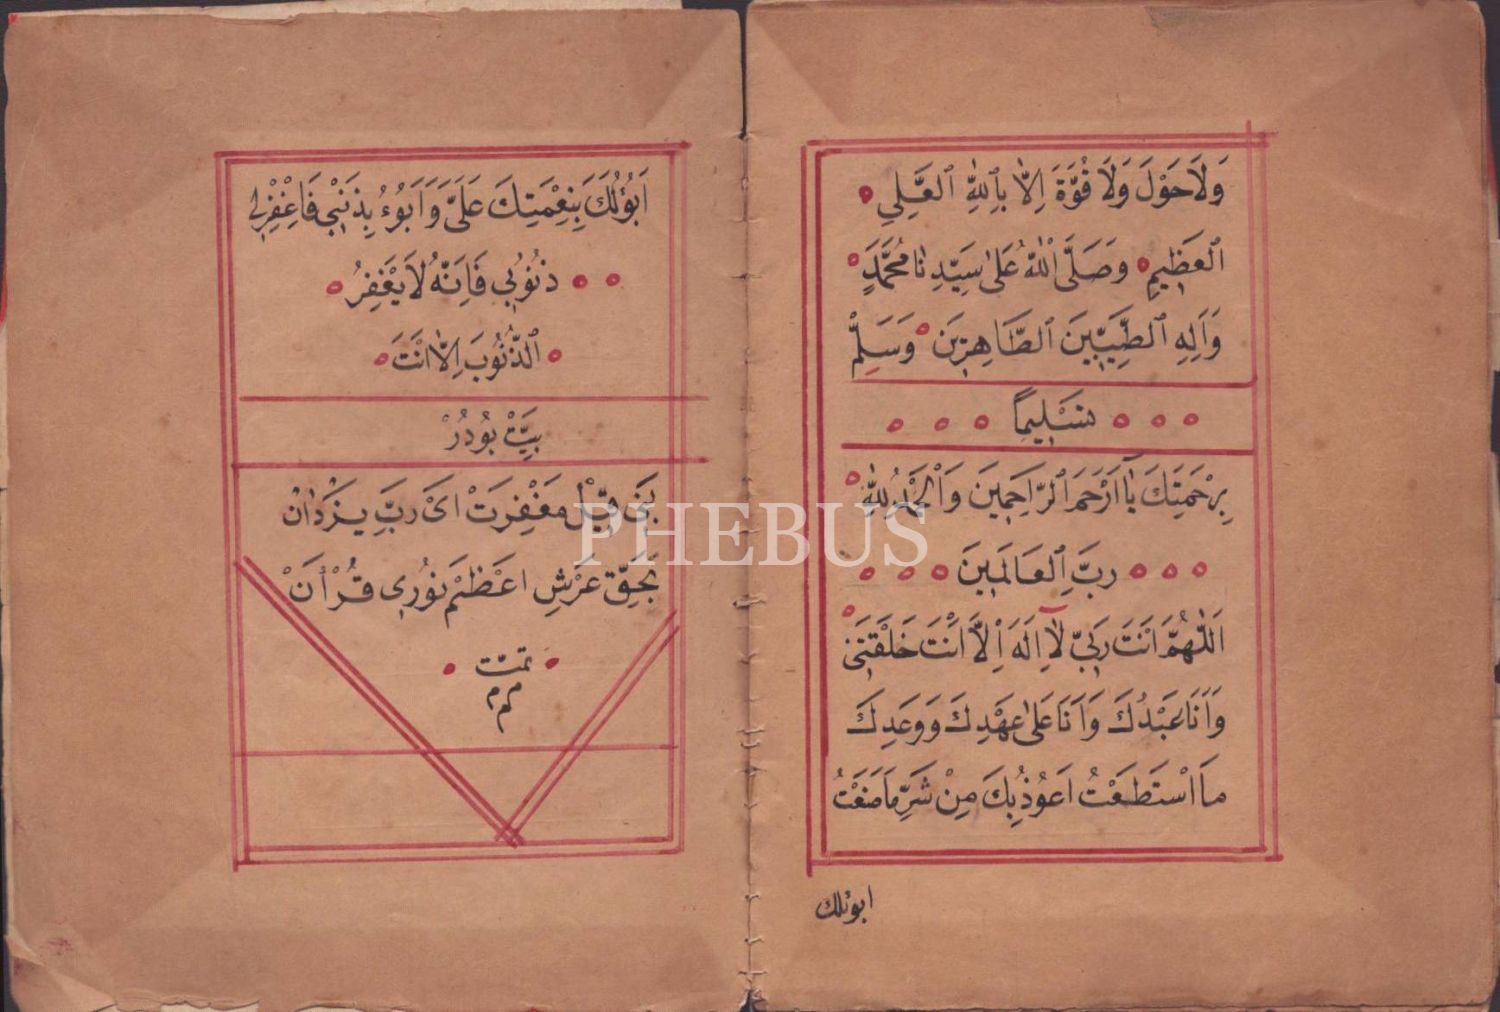 وَلَا حَوْلَ وَلَا قُوَّةَ اِلَّا بِاللّٰهِ الْعَلِيِّ
الْعَظِيمِ وَصَلَّى اللّٰهُ عَلٰى سَيِّدِنَا مُحَمَّدٍ
وَاٰلِهِ الطَّيِّبِينَ الطَّاهِرِينَ وَسَلِّمْ
تَسْلِيمًا
بِرَحْمَتِكَ يَا اَرْحَمَ الرَّاحِمِينَ وَالْحَمْدُ لِلّٰهِ
رَبِّ الْعَالَمِينَ
اَللّٰهُمَّ اَنْتَ رَبِّي لَا اِلَهَ اِلَّا اَنْتَ خَلَقْتَنِي
وَاَنَا عَبْدُكَ وَاَنَا عَلٰى عَهْدِكَ وَوَعْدِكَ
مَا اسْتَطَعْتُ اَعُوذُ بِكَ مِنْ شَرِّ مَا صَنَعْتُ
ابوئلك
اَبُوؤُلَكَ بِنِعْمَتِكَ عَلَيَّ وَاَبُوءُ بِذَنْبِي فَاغْفِرْلِي
ذُنُوبِي فَاِنَّهُ لَا يَغْفِرُ
الذُّنُوبَ اِلَّا اَنْتَ
بَيِتْ بُودُرْ
بَنِى قِيلْ مَغْفِرَتْ اَىْ رَبِّ يَزْدَانْ
بِحَقِّ عَرْشِ اَعْظَمْ نُورِى قُرْاٰنْ
تمت
م م م
PHEBUS